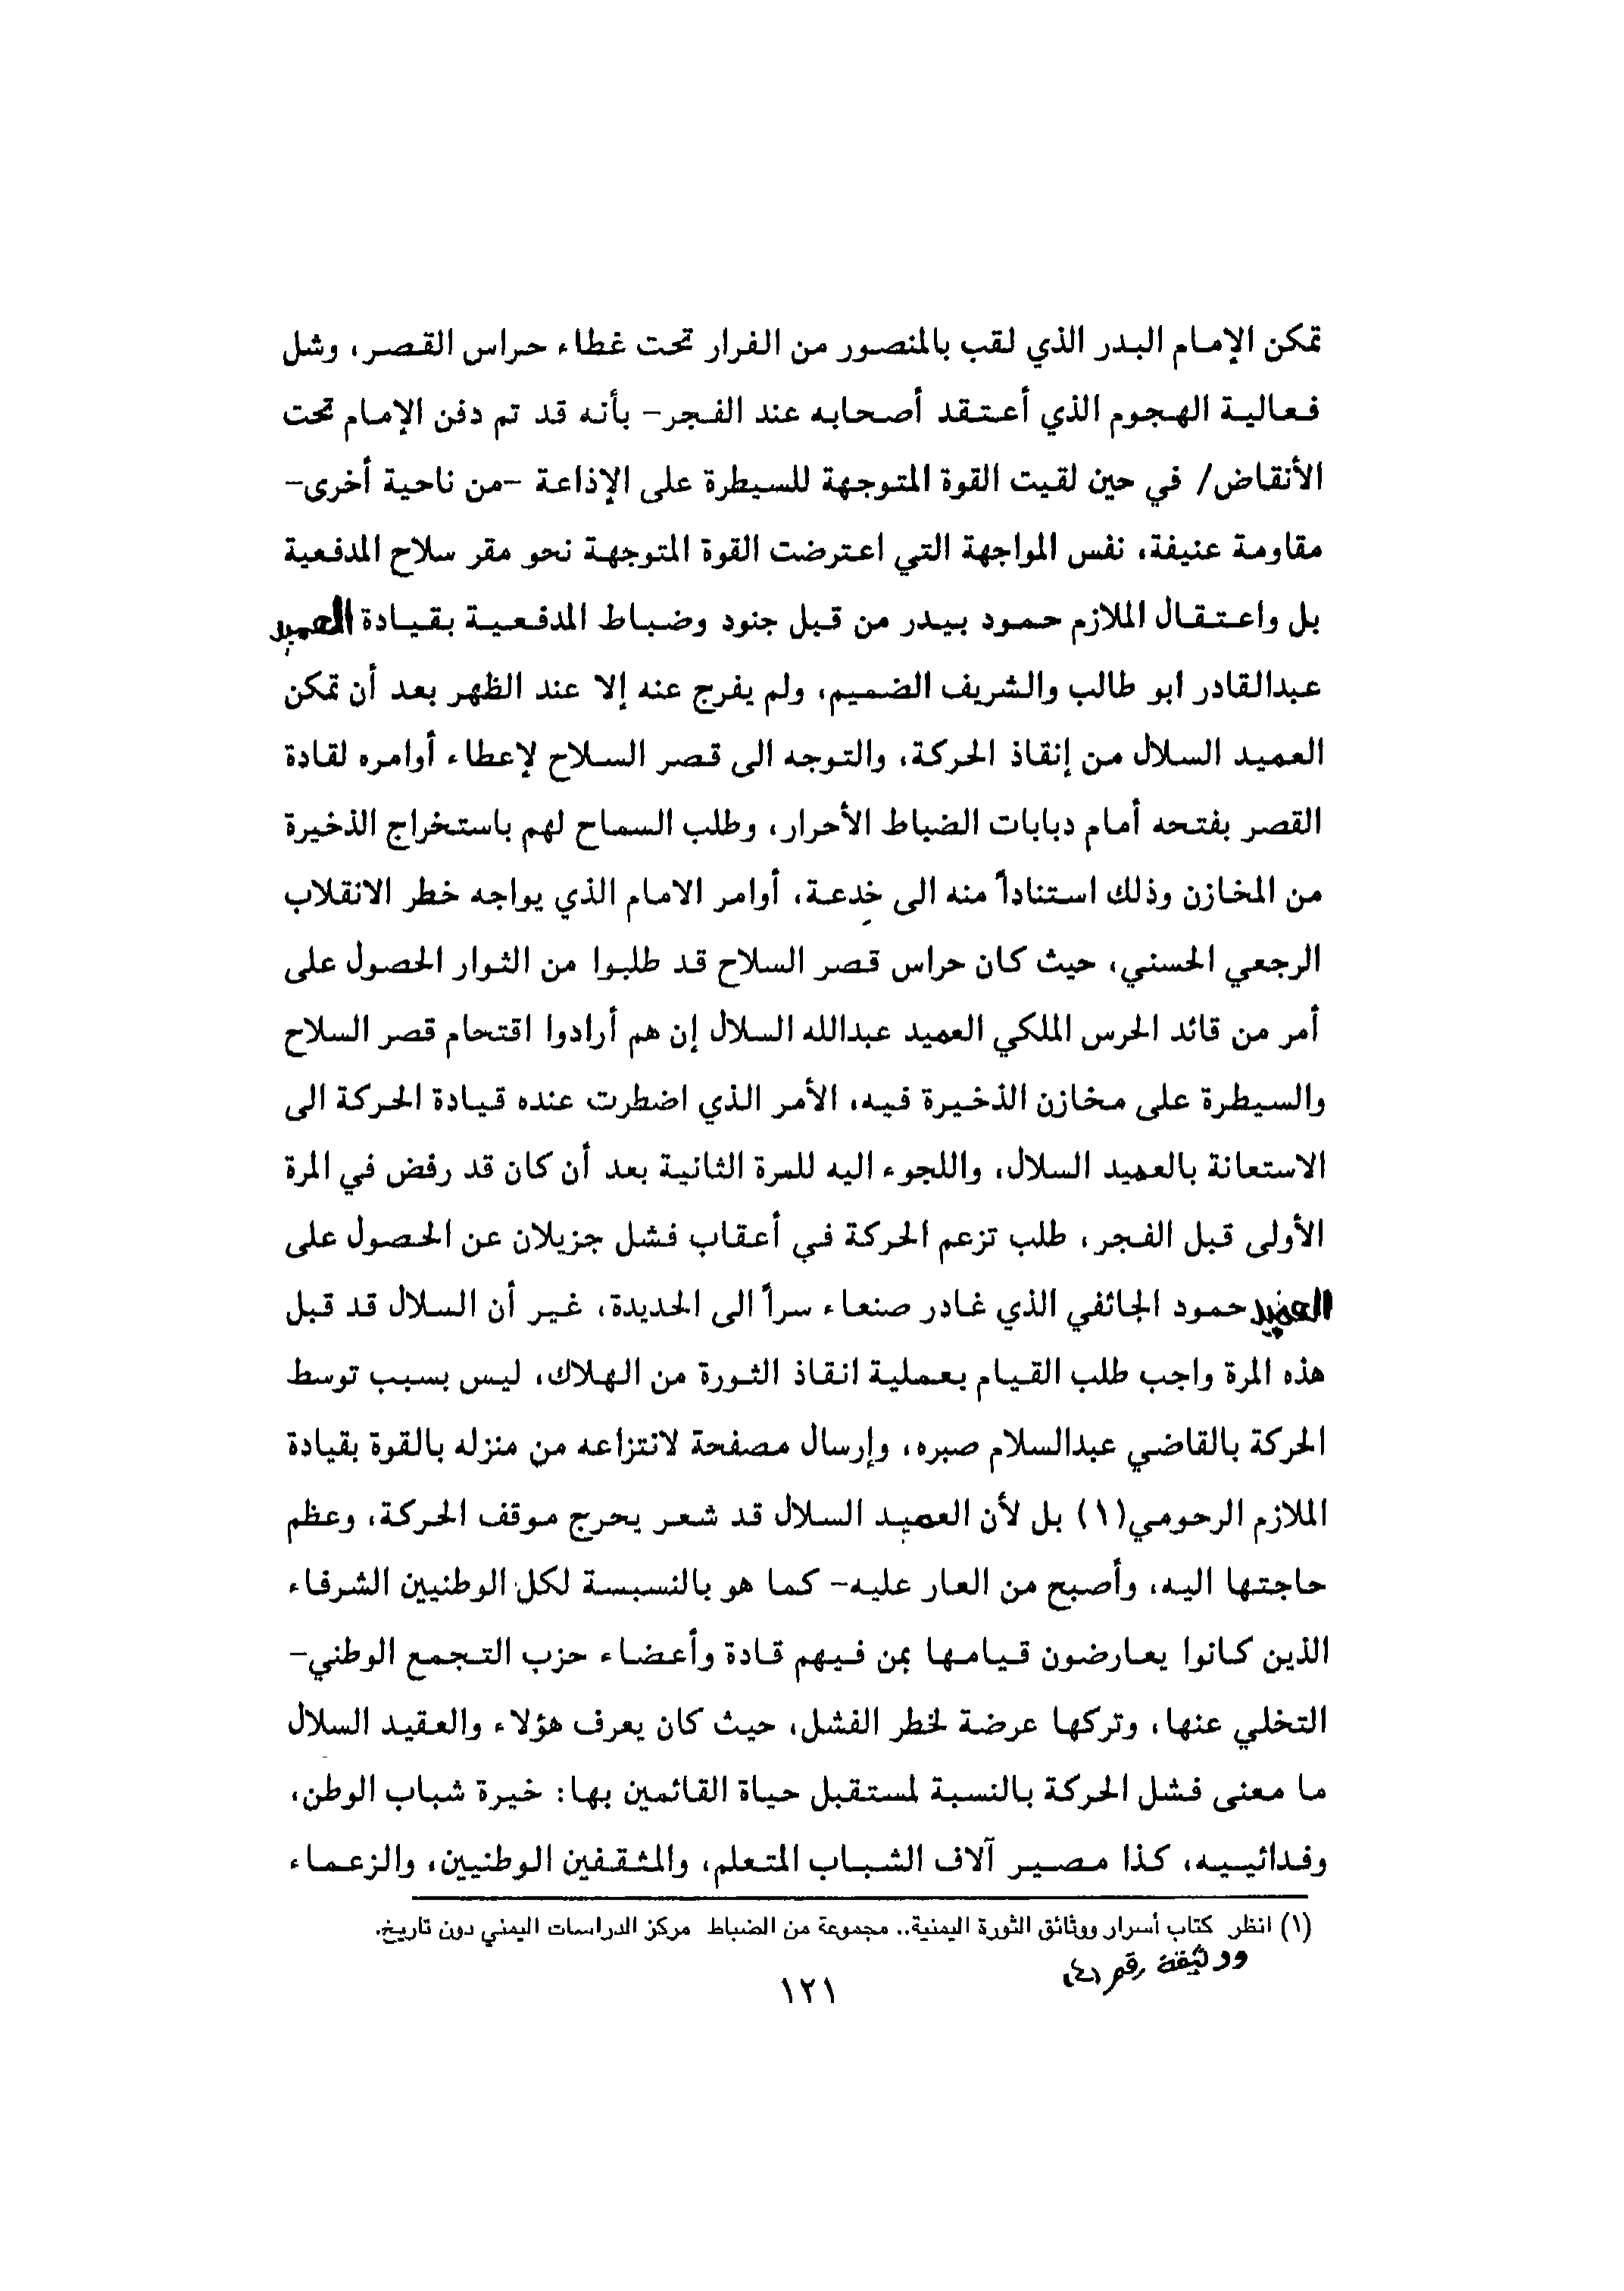 تمكن الإمام البدر الذي لقب بالمنصور من الفرار تحت غطاء حراس القصر، وشل
فعالية الهجوم الذي أعتقد أصحابه عند الفجر- بأنه قد تم دفن الإمام تحت
الأنقاض/ في حين لقيت القوة المتوجهة للسيطرة على الإذاعة -من ناحية أخرى-
مقاومة عنيفة، نفس المواجهة التي اعترضت القوة المتوجهة نحو مقر سلاح المدفعية
بل واعتقال الملازم حمود بيدر من قبل جنود وضباط المدفعية بقيادة العميد
عبدالقادر ابو طالب والشريف الضميم، ولم يفرج عنه إلا عند الظهر بعد أن تمكن
العميد السلال من إنقاذ الحركة، والتوجه الى قصر السلاح لإعطاء أوامره لقادة
القصر بفتحه أمام دبابات الضباط الأحرار، وطلب السماح لهم باستخراج الذخيرة
من المخازن وذلك استناداً منه الى خدعة، أوامر الامام الذي يواجه خطر الانقلاب
الرجعي الحسني، حيث كان حراس قصر السلاح قد طلبوا من الثوار الحصول على
أمر من قائد الحرس الملكي العميد عبدالله السلال إن هم أرادوا اقتحام قصر السلاح
والسيطرة على مخازن الذخيرة فيه، الأمر الذي اضطرت عنده قيادة الحركة الى
الاستعانة بالعميد السلال، واللجوء اليه للمرة الثانية بعد أن كان قد رفض في المرة
الأولى قبل الفجر، طلب تزعم الحركة في أعقاب فشل جزيلان عن الحصول على
العميد حمود الجائفي الذي غادر صنعاء سراً الى الحديدة، غير أن السلال قد قبل
هذه المرة واجب طلب القيام بعملية انقاذ الثورة من الهلاك، ليس بسبب توسط
الحركة بالقاضي عبدالسلام صبره، وإرسال مصفحة لانتزاعه من منزله بالقوة بقيادة
الملازم الرحومي(١) بل لأن العميد السلال قد شعر بحرج موقف الحركة، وعظم
حاجتها اليه، وأصبح من العار عليه- كما هو بالنسبسة لكل الوطنيين الشرفاء
الذين كانوا يعارضون قيامها بمن فيهم قادة وأعضاء حزب التجمع الوطني-
التخلي عنها، وتركها عرضة لخطر الفشل، حيث كان يعرف هؤلاء والعقيد السلال
ما معنى فشل الحركة بالنسبة لمستقبل حياة القائمين بها: خيرة شباب الوطن،
وفدائييه، كذا مصير آلاف الشباب المتعلم، والمثقفين الوطنيين، والزعماء
(١) انظر كتاب أسرار ووثائق الثورة اليمنية.. مجموعة من الضباط مركز الدراسات اليمني دون تاريخ.
ووثيقة رقم (٤)
١٢١